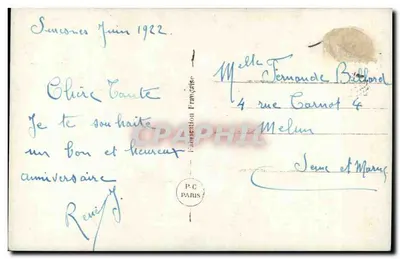 Juin 1922.
Chère Tante
Je te souhaite
un bon et heureux
anniversaire
René J.
Fabrication Française
P-C
PARIS
Melle Fernande Billard
4 rue Carnot 4
Melun
Seine et Marne
CPAPHIL